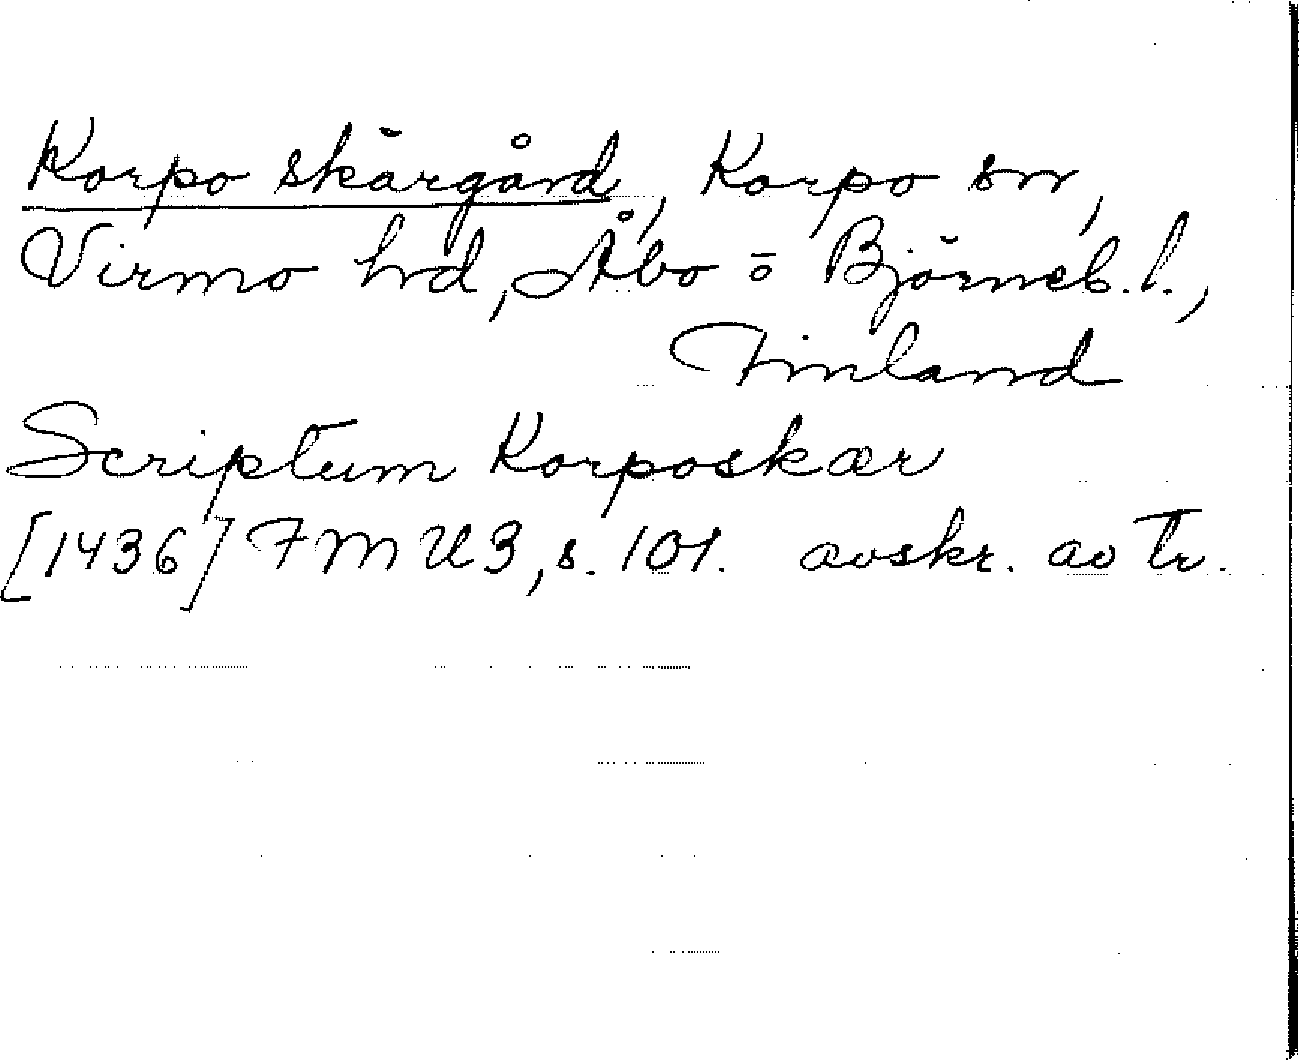 Korpo skärgård, Korpo sn,
Virmo hd, Åbo o Björneb. l.,
Finland
Scriptum Korposkær
[1436] FMU 3, s. 101. avskr. av tr.